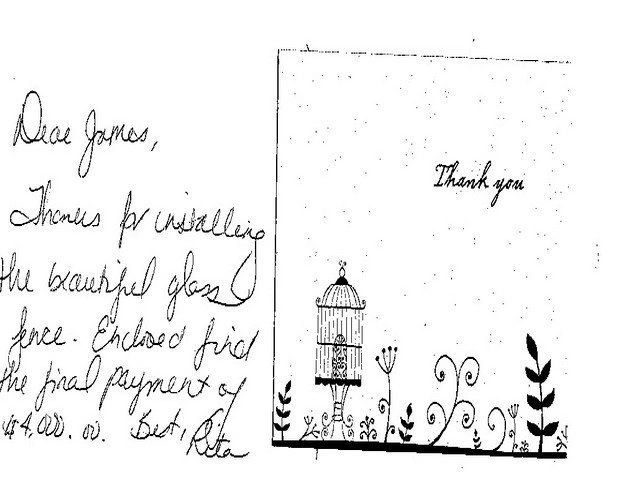 Dear James,
Thanks for installing
the beautiful glass
fence. Enclosed find
the final payment of
$4,000.00. Best,
Rita
Thank you